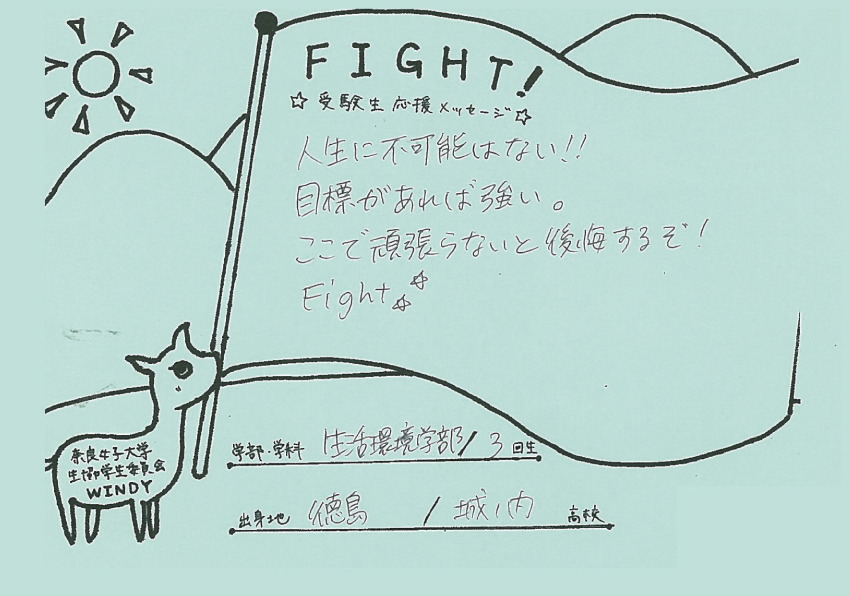 FIGHT!
☆受験生応援メッセージ☆
人生に不可能はない!!
目標があれば強い。
ここで頑張らないと後悔するぞ!
Fight☆☆
学部・学科 生活環境学部/3回生
出身地 徳島/城ノ内 高校
奈良女子大学
生協学生委員会
WINDY